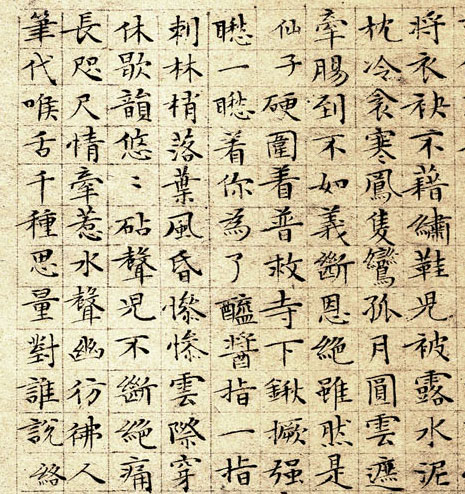 將衣袂不藉繡鞋兒被露水泥
枕冷衾寒鳳隻鸞孤月圓雲遮
牽腸到不如義斷恩絕雖然是
仙子硬圍着普救寺下鍬撅强
矁一矁着你為了醯醬指一指
刺林梢落葉風昏慘慘雲際穿
休歇韻悠〻砧聲兒不斷絕痛
長咫尺情牽惹水聲幽彷彿人
筆代喉舌千種思量對誰說絡